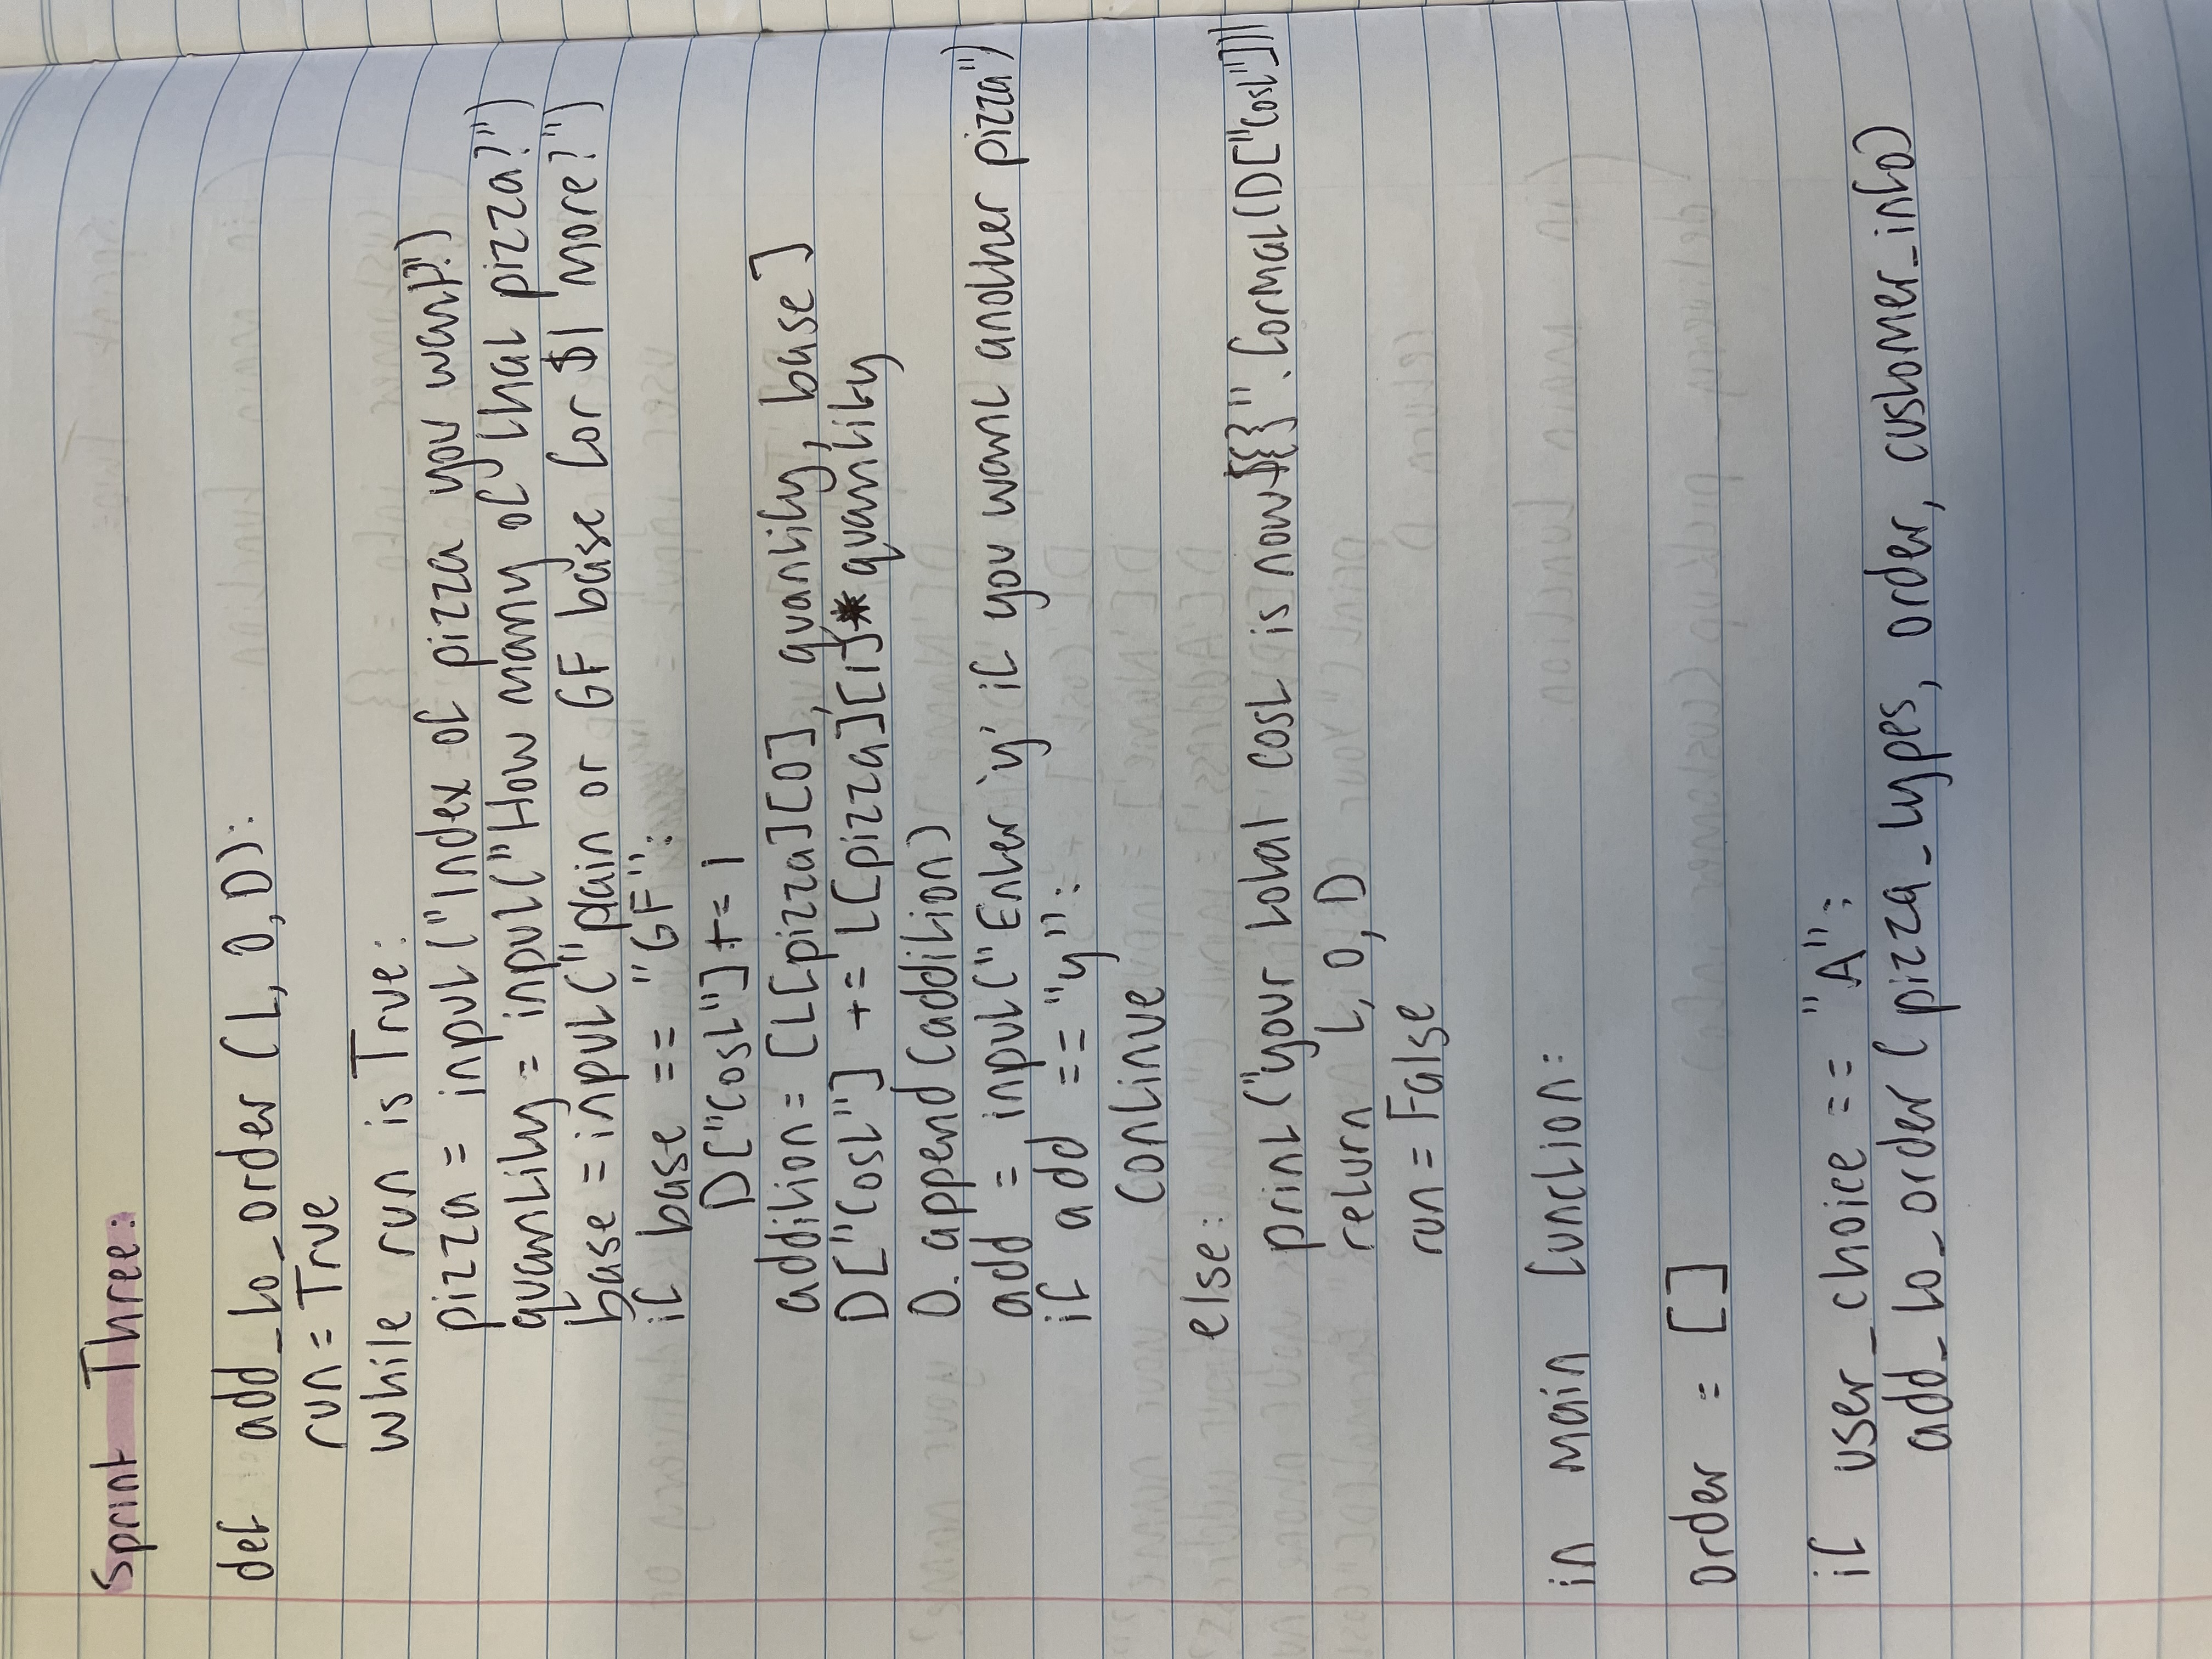 Sprint Three:
def add_to_order (L, O, D):
run = True
while run is True:
pizza = input ("Index of pizza you want?")
quantity = input("How many of that pizza?")
base = input("plain or GF base for $1 more?")
if base == "GF":
D["Cost"] += 1
addition = [L[pizza][0], quantity, base]
D["Cost"] += L[pizza][1]*quantity
O. append (addition)
add = input("Enter 'y' if you want another pizza")
if add == "y":
continue
else:
print ("your total cost is now ${}". format(D["Cost"]))
return L, O, D
run = False
in main function:
order = []
if user_choice == "A":
add_to_order (pizza_types, order, customer_info)